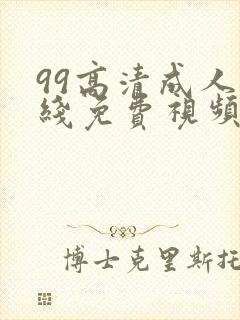 99高清成人
綫免費視頻
博士克里斯托